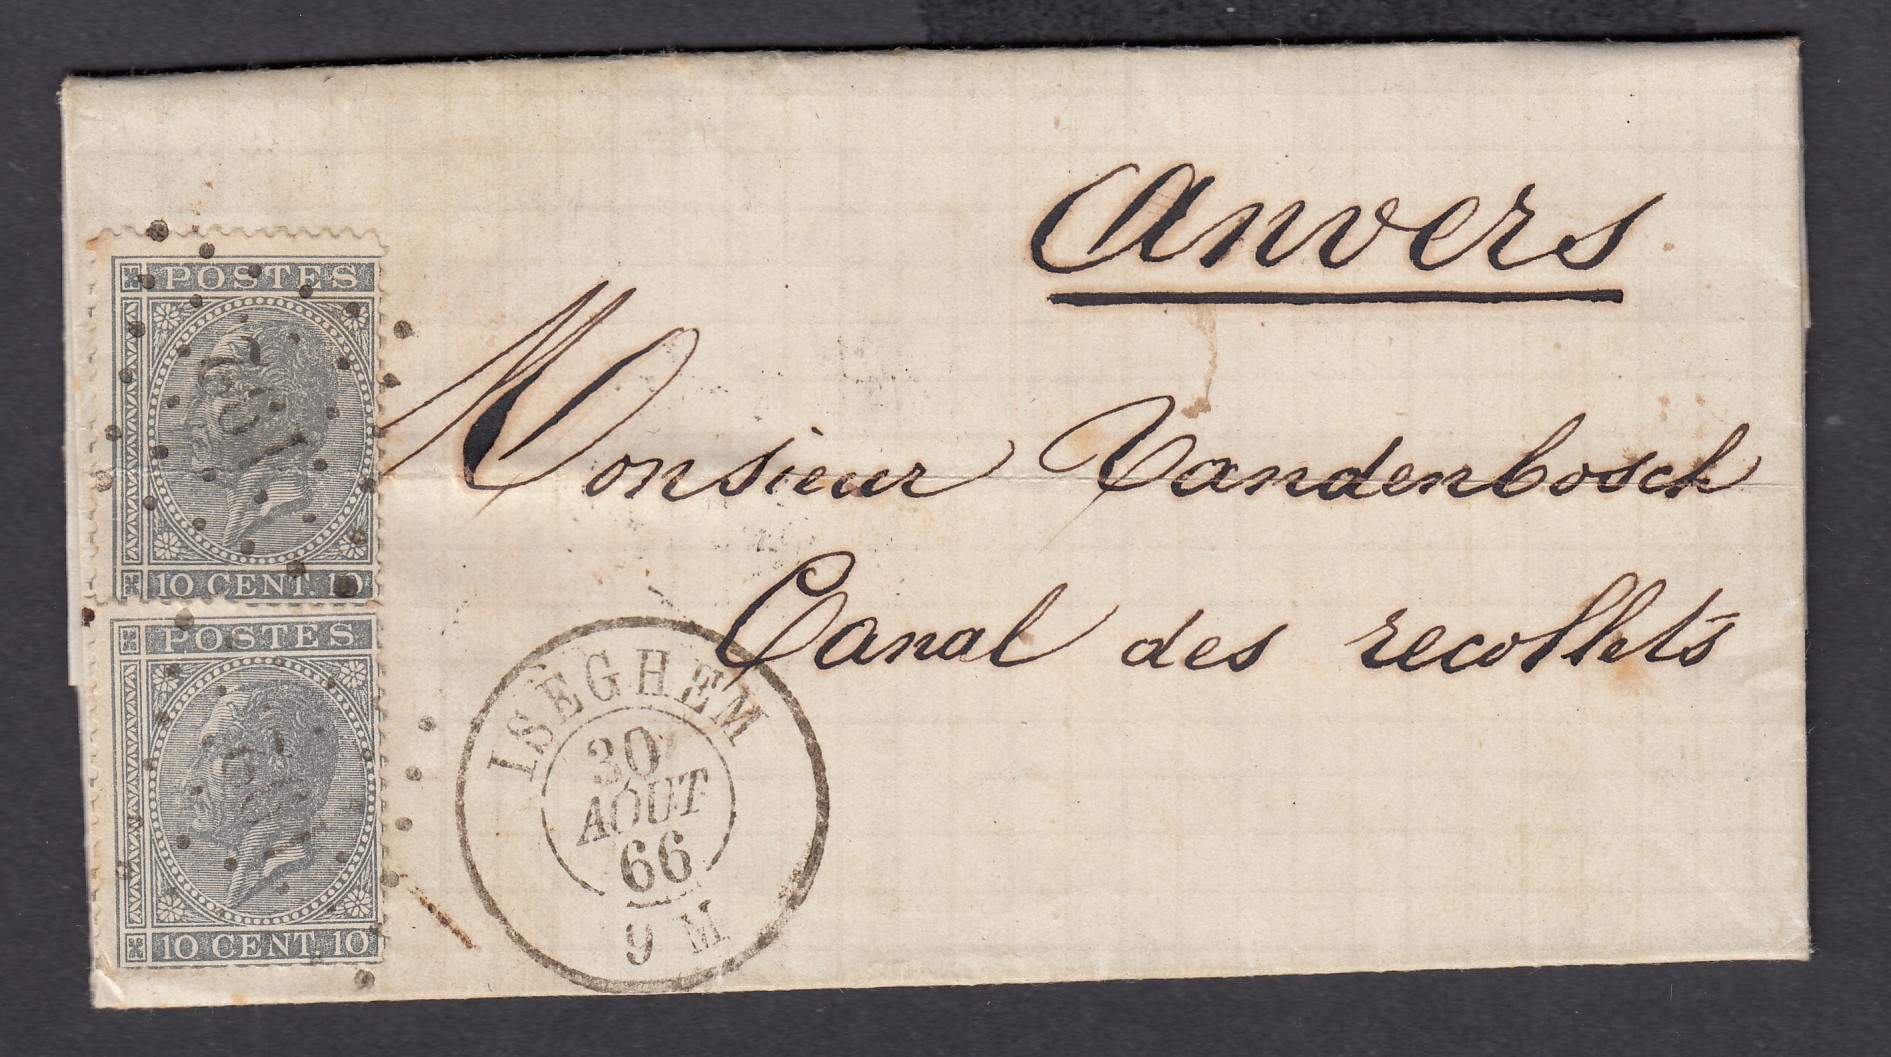 Anvers
Monsieur Vandenbosch
Canal des recollets
POSTES
10 CENT. 10
POSTES
10 CENT. 10
ISEGHEM
30
AOUT
66
9 M